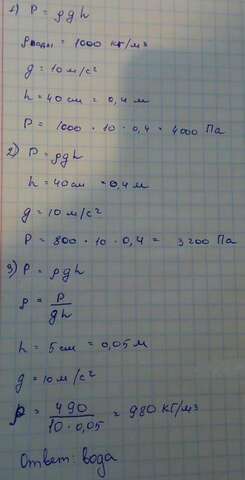 1) P = ρgh
ρводы = 1000 кг/м3
g = 10 м/с²
h = 40 см = 0,4 м
P = 1000 · 10 · 0,4 = 4000 Па
2) P = ρgh
h = 40 см = 0,4 м
g = 10 м/с²
P = 800 · 10 · 0,4 = 3200 Па
3) P = ρgh
ρ = P / gh
h = 5 см = 0,05 м
g = 10 м/с²
ρ = 490 / 10 · 0,05 = 980 кг/м3
Ответ: вода